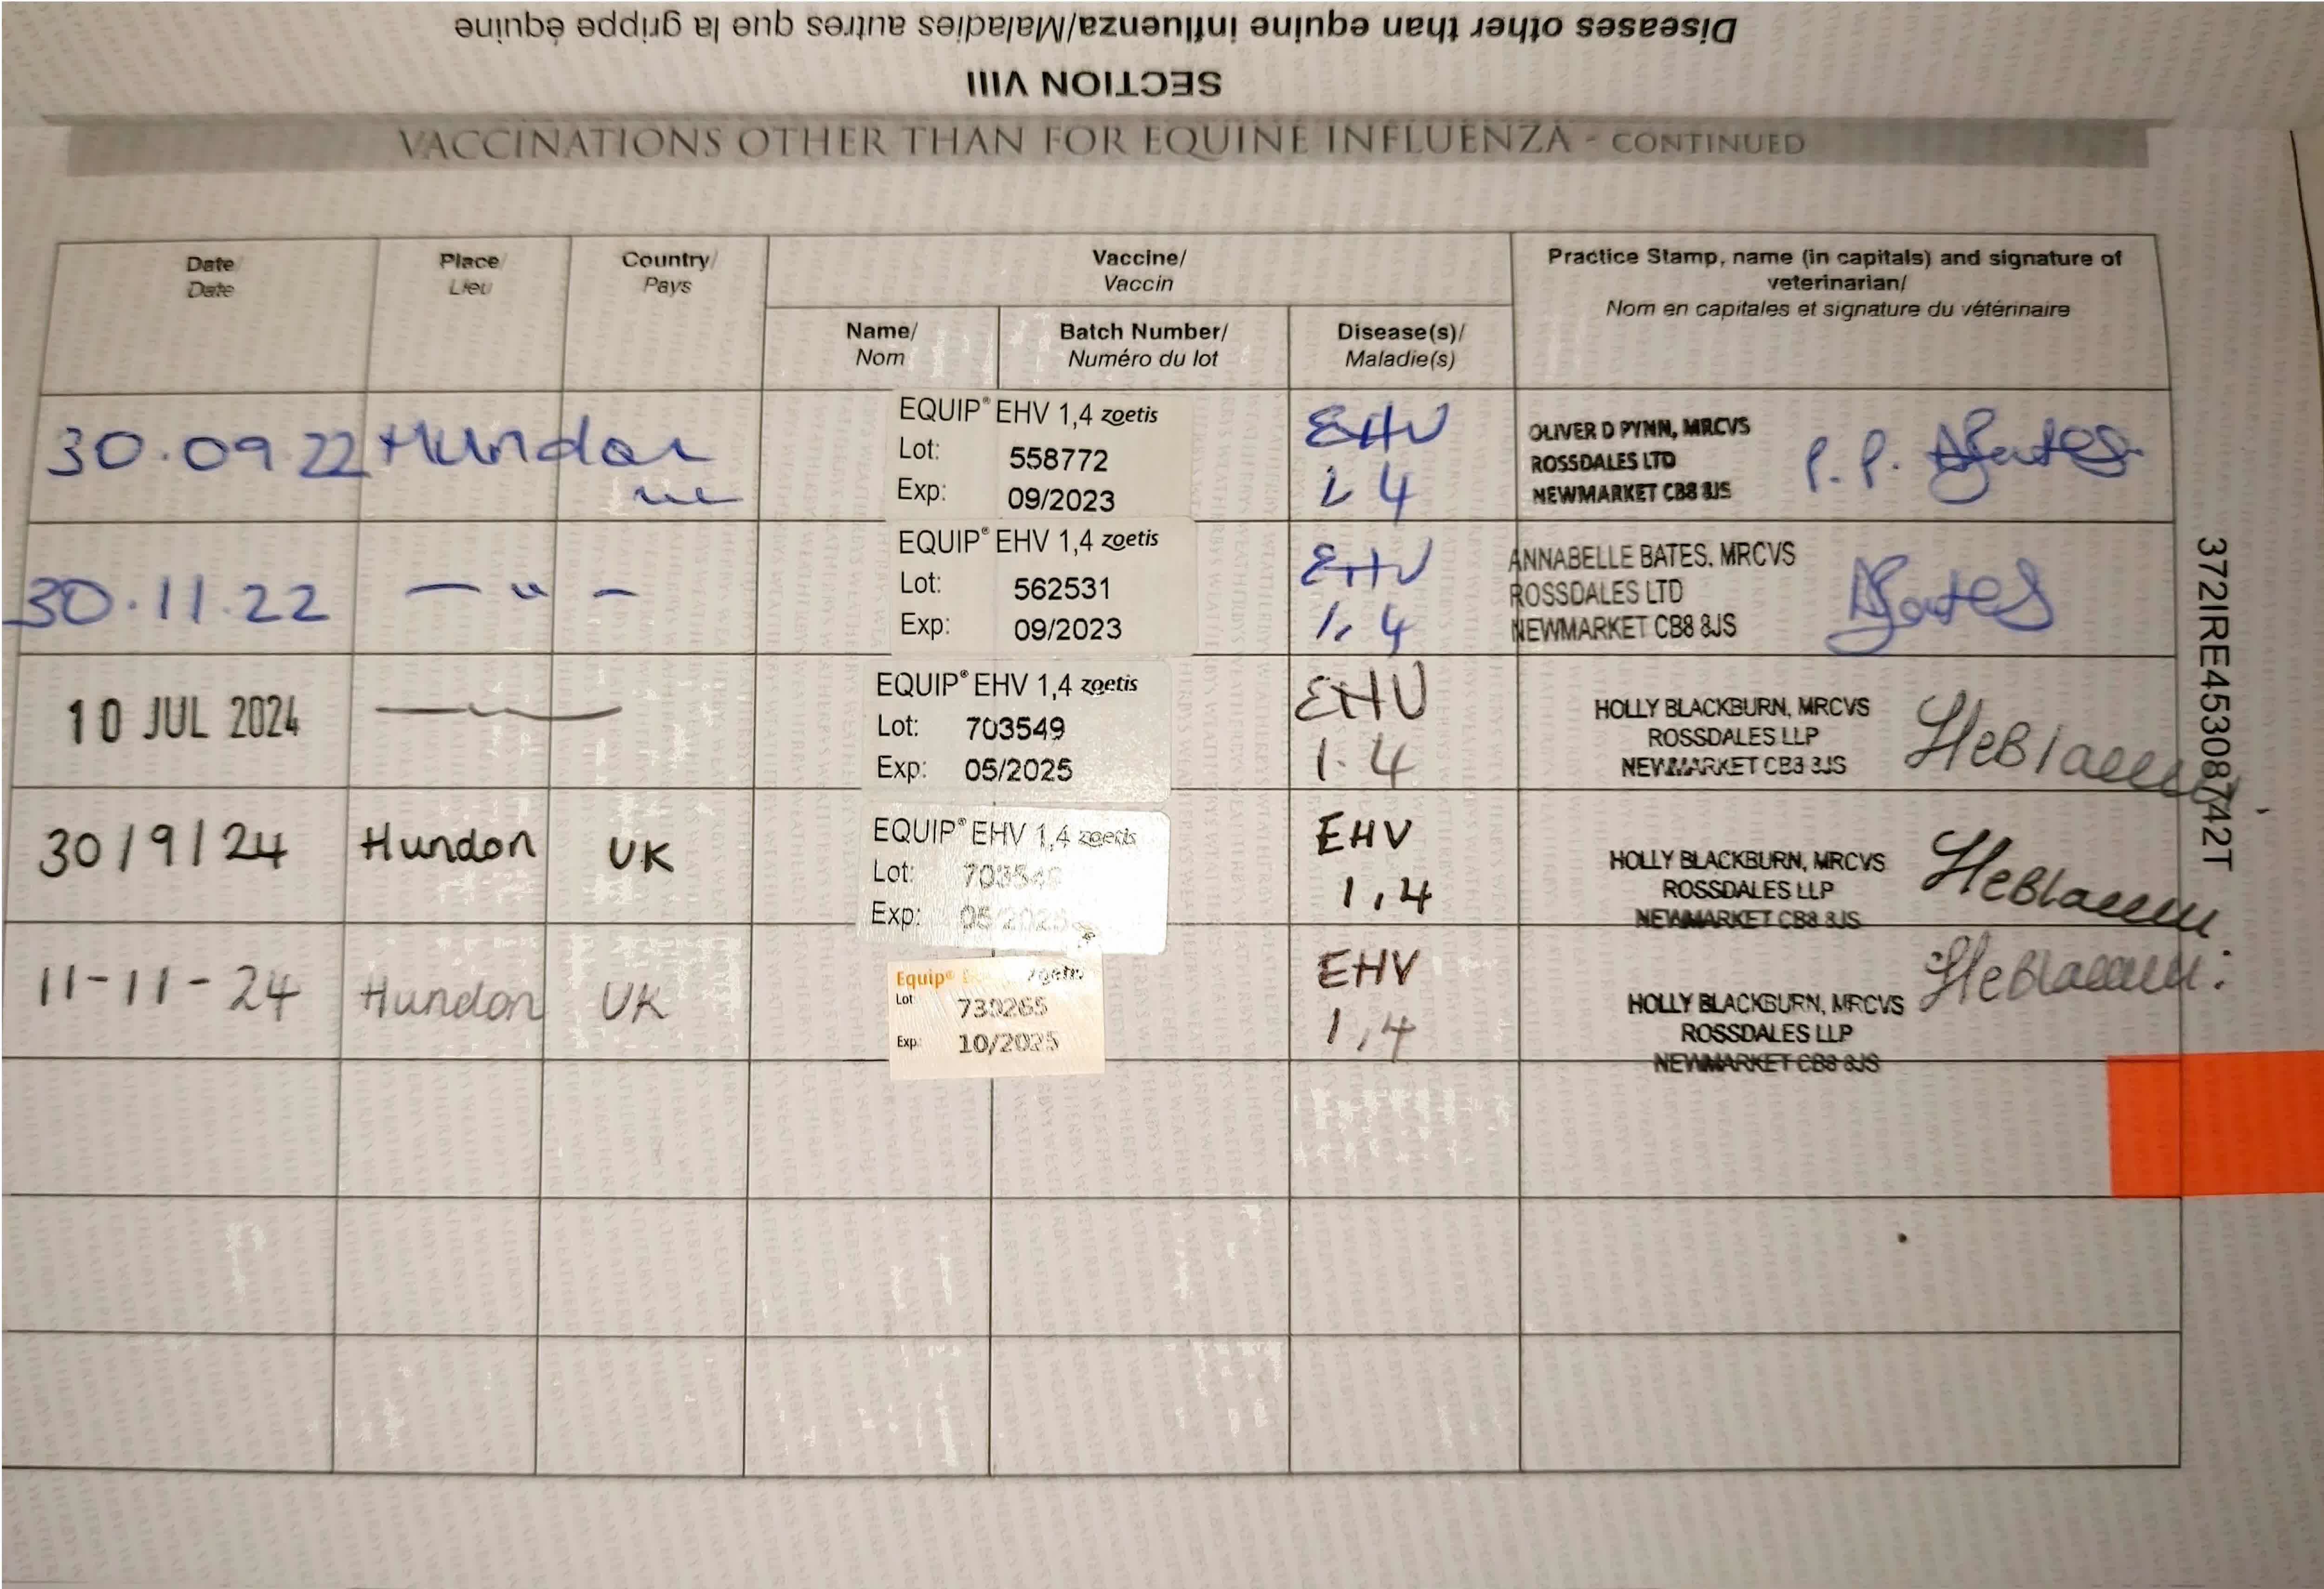 Diseases other than equine influenza/Maladies autres que la grippe équine
SECTION VIII
VACCINATIONS OTHER THAN FOR EQUINE INFLUENZA - CONTINUED
Date/
Date
Place/
Lieu
Country/
Pays
Vaccine/
Vaccin
Practice Stamp, name (in capitals) and signature of
veterinarian/
Nom en capitales et signature du vétérinaire
Name/
Nom
Batch Number/
Numéro du lot
Disease(s)/
Maladie(s)
30.09.22 Hundon
EQUIP® EHV 1,4 zoetis
Lot: 558772
Exp: 09/2023
EHV
1,4
OLIVER D PYNN, MRCVS
ROSSDALES LTD
NEWMARKET CB8 8JS
P.P. ABates
30.11.22 — " —
EQUIP® EHV 1,4 zoetis
Lot: 562531
Exp: 09/2023
EHV
1,4
ANNABELLE BATES, MRCVS
ROSSDALES LTD
NEWMARKET CB8 8JS
ABates
10 JUL 2024
EQUIP® EHV 1,4 zoetis
Lot: 703549
Exp: 05/2025
EHV
1.4
HOLLY BLACKBURN, MRCVS
ROSSDALES LLP
NEWMARKET CB8 8JS
30/9/24 Hundon UK
EQUIP® EHV 1,4 zoetis
Lot: 703549
Exp: 05/2025
EHV
1,4
HOLLY BLACKBURN, MRCVS
ROSSDALES LLP
NEWMARKET CB8 8JS
11-11-24 Hundon UK
Equip® zoetis
Lot 730265
Exp: 10/2025
EHV
1,4
HOLLY BLACKBURN, MRCVS
ROSSDALES LLP
NEWMARKET CB8 8JS
372IRE45308742T